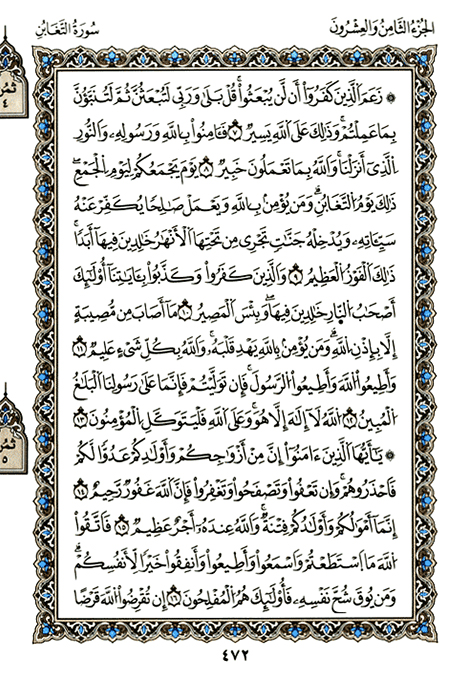 الجُزءُ الثَّامِنُ وَالعِشْرُونَ
سُورَةُ التَّغَابُنِ
۞ زَعَمَ الَّذِينَ كَفَرُوٓا۟ أَن لَّن يُبْعَثُوا۟ ۚ قُلْ بَلَىٰ وَرَبِّى لَتُبْعَثُنَّ ثُمَّ لَتُنَبَّؤُنَّ
بِمَا عَمِلْتُمْ ۚ وَذَٰلِكَ عَلَى اللَّهِ يَسِيرٌ ٧ فَـَٔامِنُوا۟ بِاللَّهِ وَرَسُولِهِۦ وَالنُّورِ
الَّذِىٓ أَنزَلْنَا ۚ وَاللَّهُ بِمَا تَعْمَلُونَ خَبِيرٌ ٨ يَوْمَ يَجْمَعُكُمْ لِيَوْمِ الْجَمْعِ ۖ
ذَٰلِكَ يَوْمُ التَّغَابُنِ ۗ وَمَن يُؤْمِنۢ بِاللَّهِ وَيَعْمَلْ صَـٰلِحًا يُكَفِّرْ عَنْهُ
سَيِّـَٔاتِهِۦ وَيُدْخِلْهُ جَنَّـٰتٍ تَجْرِى مِن تَحْتِهَا الْأَنْهَـٰرُ خَـٰلِدِينَ فِيهَآ أَبَدًا ۚ
ذَٰلِكَ الْفَوْزُ الْعَظِيمُ ٩ وَالَّذِينَ كَفَرُوا۟ وَكَذَّبُوا۟ بِـَٔايَـٰتِنَآ أُو۟لَـٰٓئِكَ
أَصْحَـٰبُ النَّارِ خَـٰلِدِينَ فِيهَا ۖ وَبِئْسَ الْمَصِيرُ ١٠ مَآ أَصَابَ مِن مُّصِيبَةٍ
إِلَّا بِإِذْنِ اللَّهِ ۗ وَمَن يُؤْمِنۢ بِاللَّهِ يَهْدِ قَلْبَهُۥ ۚ وَاللَّهُ بِكُلِّ شَىْءٍ عَلِيمٌ ١١
وَأَطِيعُوا۟ اللَّهَ وَأَطِيعُوا۟ الرَّسُولَ ۚ فَإِن تَوَلَّيْتُمْ فَإِنَّمَا عَلَىٰ رَسُولِنَا الْبَلَـٰغُ
الْمُبِينُ ١٢ اللَّهُ لَآ إِلَـٰهَ إِلَّا هُوَ ۚ وَعَلَى اللَّهِ فَلْيَتَوَكَّلِ الْمُؤْمِنُونَ ١٣
۞ يَـٰٓأَيُّهَا الَّذِينَ ءَامَنُوٓا۟ إِنَّ مِنْ أَزْوَٰجِكُمْ وَأَوْلَـٰدِكُمْ عَدُوًّا لَّكُمْ
فَاحْذَرُوهُمْ ۚ وَإِن تَعْفُوا۟ وَتَصْفَحُوا۟ وَتَغْفِرُوا۟ فَإِنَّ اللَّهَ غَفُورٌ رَّحِيمٌ ١٤
إِنَّمَآ أَمْوَٰلُكُمْ وَأَوْلَـٰدُكُمْ فِتْنَةٌ ۚ وَاللَّهُ عِندَهُۥٓ أَجْرٌ عَظِيمٌ ١٥ فَاتَّقُوا۟
اللَّهَ مَا اسْتَطَعْتُمْ وَاسْمَعُوا۟ وَأَطِيعُوا۟ وَأَنفِقُوا۟ خَيْرًا لِّأَنفُسِكُمْ ۗ
وَمَن يُوقَ شُحَّ نَفْسِهِۦ فَأُو۟لَـٰٓئِكَ هُمُ الْمُفْلِحُونَ ١٦ إِن تُقْرِضُوا۟ اللَّهَ قَرْضًا
ثمن
٤
ثمن
٥
٤٧٢